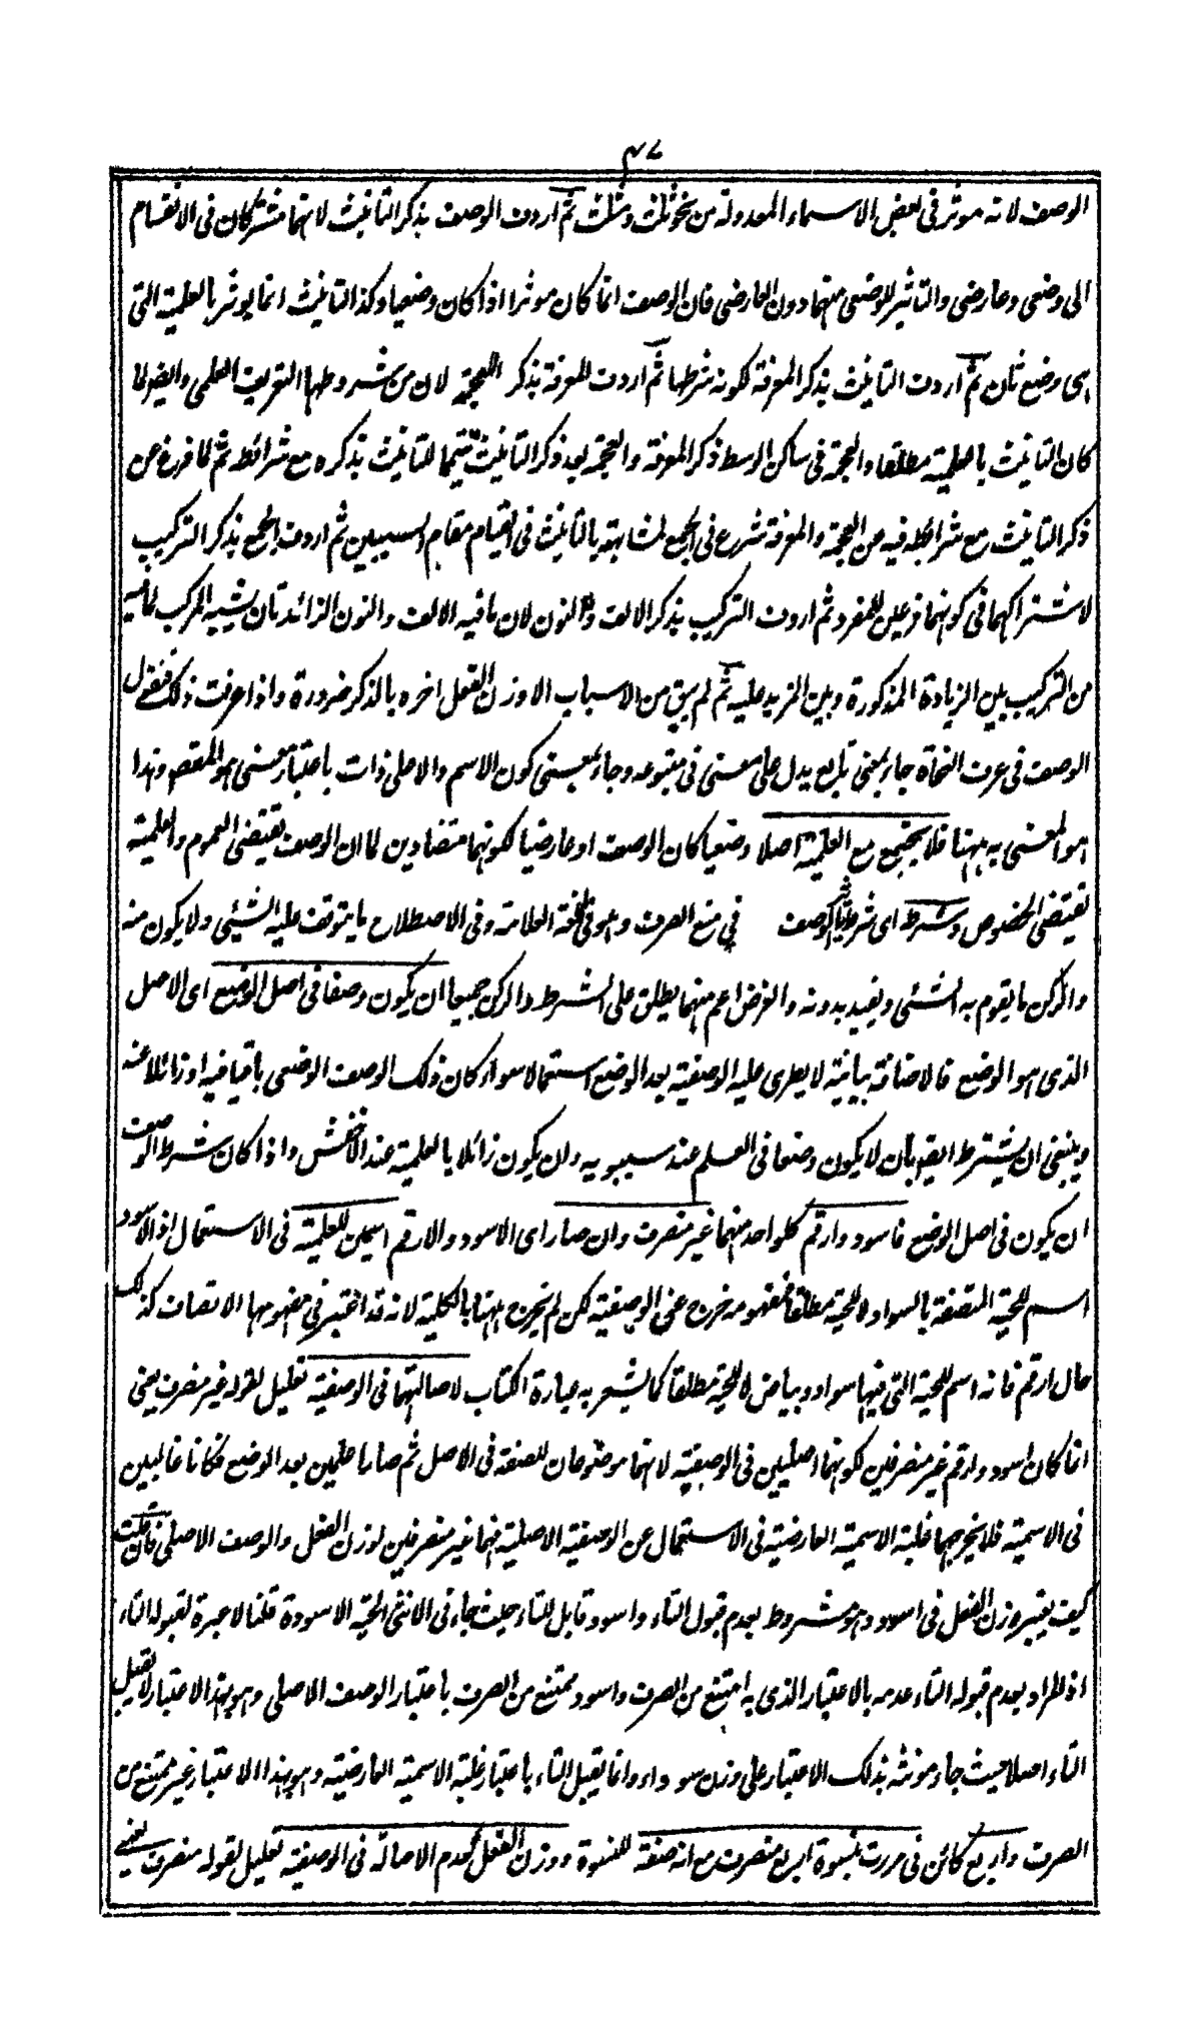 ۴۷
الوصف لانه موثر فى بعض الاسماء المعدولة من نحو ثلث ومثلث ثم اردف الوصف بذكر التانيث لانهما مشتركان فى الانقسام
الى وضعى وعارضى والتاثير للوضعى منهما دون العارضى فان الوصف انما كان موثرا اذا كان وضعيا وكذا التانيث انما يوثر بالعلمية التى
هى وضع ثان ثم اردف التانيث بذكر المعرفة لكونه شرطها ثم اردف المعرفة بذكر العجمة لان من شروطها التعريف العلمى وايضا لما
كان التانيث بالعلمية مطلقا والعجمة فى ساكن الوسط ذكر المعرفة والعجمة بعد ذكر التانيث تتميما للتانيث بذكره مع شرائطه ثم لما فرغ عن
ذكر التانيث مع شرائطه فيه من العجمة والمعرفة شرع فى الجمع لمشابهته بالتانيث فى القيام مقام السببين ثم اردف الجمع بذكر التركيب
لاشتراكهما فى كونهما فرعين للمفرد ثم اردف التركيب بذكر الالف والنون لان ما فيه الالف والنون الزائدتان يشبه المركب لما فيه
من التركيب بين الزيادة المذكورة وبين المزيد عليه ثم لم يبق من الاسباب الا وزن الفعل اخره بالذكر ضرورة واذا عرفت ذلك فنقول
الوصف فى عرف النحاة جاء بمعنى تابع يدل على معنى فى متبوعه وجاء بمعنى كون الاسم والا على ذات باعتبار معنى هو المقصود وهذا
هو المعنى به ههنا فلا يجتمع مع العلمية اصلا وضعيا كان الوصف او عارضيا لكونهما متضادين لما ان الوصف يقتضى العموم والعلمية
تقتضى الخصوص وشرطه اى شرط تاثير الوصف فى منع الصرف وهو فى اللغة العلامة وفى الاصطلاح ما يتوقف عليه الشيئ ولا يكون منه
والركن ما يقوم به الشئى ويفيد بدونه والفرض اعم منهما يطلق على الشرط والركن جميعا ان يكون وصفا فى اصل الوضع اى الاصل
الذى هو الوضع فالاضافة بيانية لا يطرى عليه الوصفية بعد الوضع استعمالا سواء كان ذلك الوصف الوضعى باقيا فيه او زائلا عنه
وينبغى ان يشترط ايضا بان لا يكون وضعا فى العلم عند سيبويه وان يكون زائلا بالعلمية عند الاخفش واذا كان شرط الوصف
ان يكون فى اصل الوضع فاسود وارقم كلواحد منهما غير منصرف وان صار اى الاسود والارقم اسمين للحية فى الاستعمال اذ الاسود
اسم للحية المتصفة بالسواد لا للحية مطلقا فمفهومه خرج عن الوصفية لكن لم يخرج ههنا بالكلية لانه قد اعتبر فى مفهومها الاتصاف كذلك
حال ارقم فانه اسم للحية التى فيها سواد وبياض لا للحية مطلقا كما يشعر به عبارة الكتاب لاصالتهما فى الوصفية تعليل لقوله غير منصرف يعنى
انما كان اسود وارقم غير منصرفين لكونهما اصليين فى الوصفية لانهما موضوعان للصفة فى الاصل ثم صارا علمين بعد الوضع فكانا غالبين
فى الاسمية فلا يخرجهما غلبة الاسمية العارضية فى الاستعمال عن الوصفية الاصلية فهما غير منصرفين لوزن الفعل والوصف الاصلى فان قلت
كيف يعتبر وزن الفعل فى اسود وهو مشروط بعدم قبول التاء واسود قابل للتاء حيث جاء فى الانثى الحية الاسودة قلنا لا عبرة لقبوله التاء
اذ المراد بعدم قبوله التاء عدمه بالاعتبار الذى به امتنع من الصرف واسود ممتنع من الصرف باعتبار الوصف الاصلى وهو بهذا الاعتبار لا يقبل
التاء اصلا حيث جاء مونثه بذلك الاعتبار على وزن سوداء وانما يقبل التاء باعتبار غلبة الاسمية العارضية وهو بهذا الاعتبار غير ممتنع من
الصرف واربع كائن فى مررت بنسوة اربع منصرف مع انه صفة للنسوة ووزن الفعل لعدم الاصالة فى الوصفية تعليل لقوله منصرف يعنى